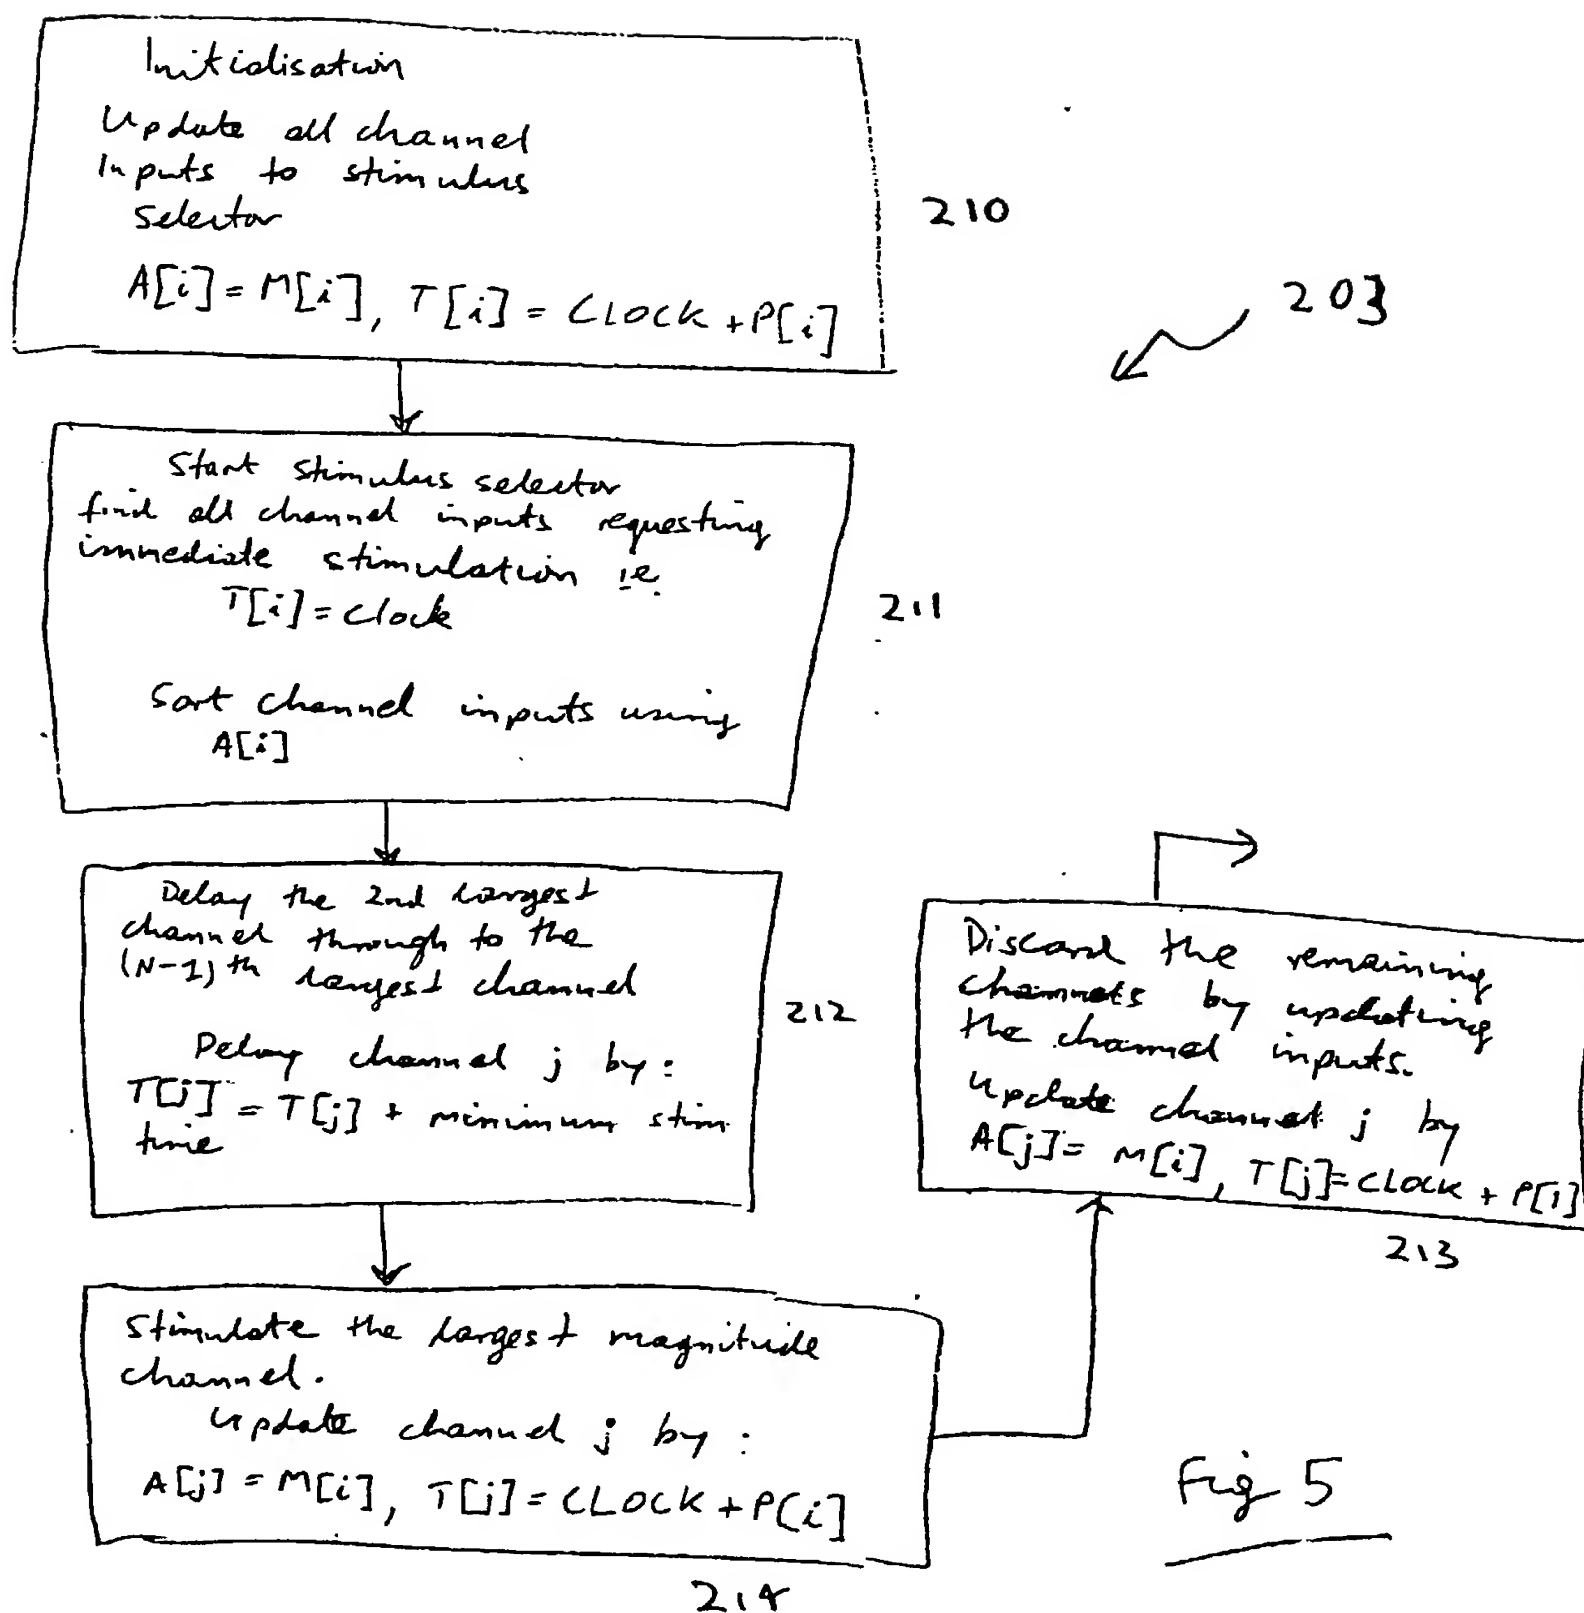 Initialisation
Update all channel
Inputs to stimulus
Selector
A[i] = M[i], T[i] = CLOCK + P[i]
210
203
Start stimulus selector
find all channel inputs requesting
immediate stimulation ie.
T[i] = Clock
211
Sort channel inputs using
A[i]
Delay the 2nd largest
channel through to the
(N-1)th largest channel
212
Delay channel j by :
T[j] = T[j] + minimum stim
time
Stimulate the largest magnitude
channel.
Update channel j by :
A[j] = M[i], T[j] = CLOCK + P[i]
214
Discard the remaining
channels by updating
the channel inputs.
Update channel j by
A[j] = M[i], T[j] = CLOCK + P[i]
213
Fig 5